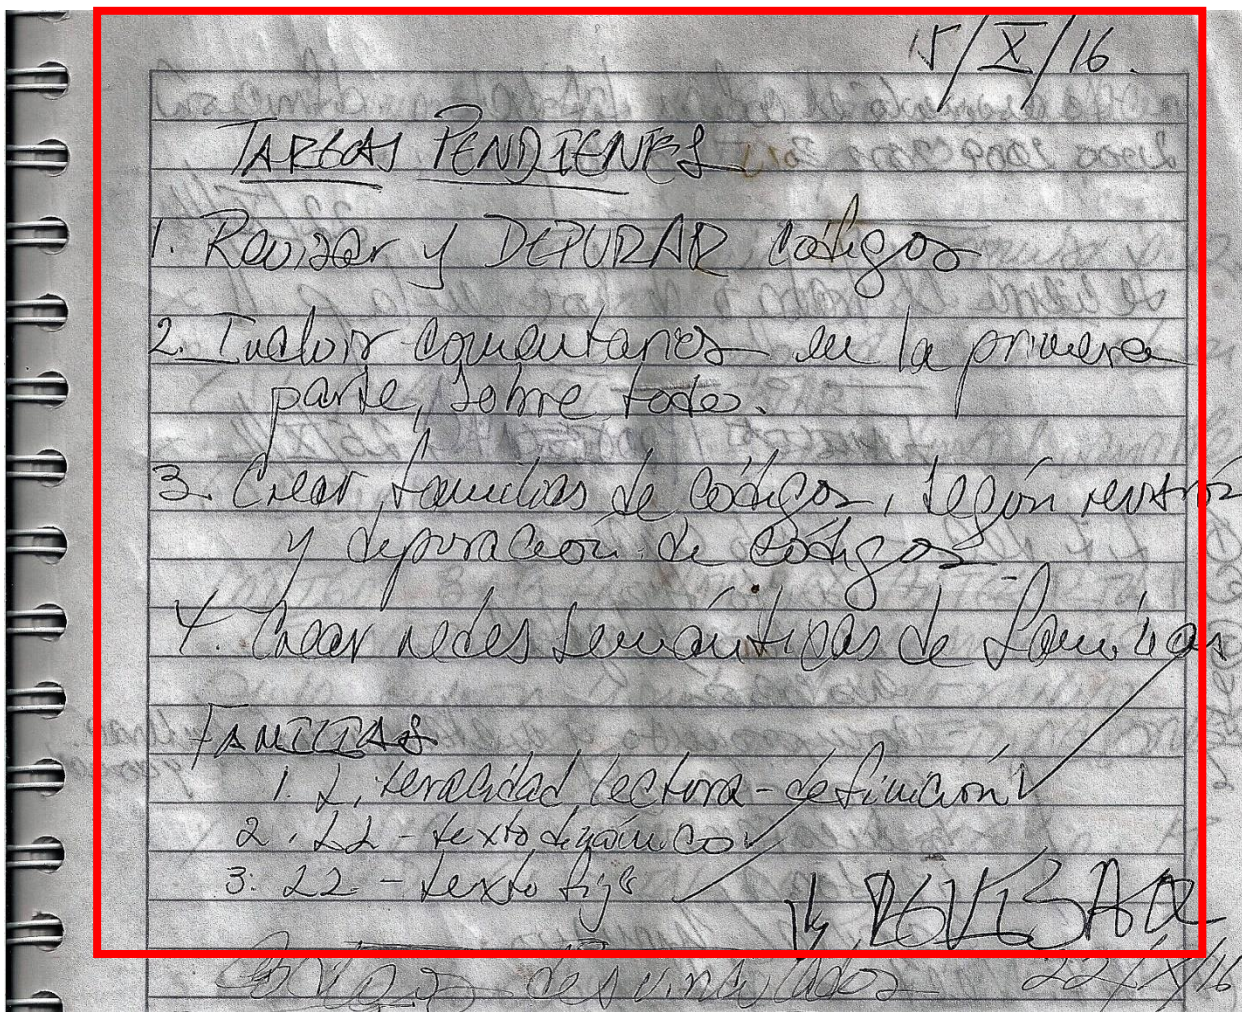 15/X/16.
TAREAS PENDIENTES
1. Revisar y DEPURAR códigos
2. Incluir comentarios en la primera
parte, sobre todo.
3. Crear familias de códigos, según
y depuración de códigos
4. Crear redes semánticas de familias
FAMILIAS
1. lectora - definición
2. 22 - texto dinámico
3. 22 - texto fijo
REVISAR
Códigos desvinculados 22/X/16